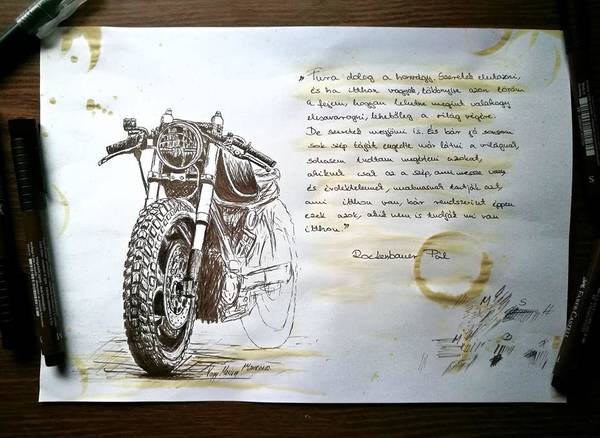 „Fura dolog a honvágy. Szeretek elutazni,
és ha itthon vagyok, többnyire azon töröm
a fejem, hogyan lehetne megint valahogy
elcsavarogni, lehetőleg a világ végére.
De szeretek megjönni is. És bár jó sorsom
sok szép táját engedte már látni a világnak,
sohasem tudtam megérteni azokat,
akiknek csak az a szép, ami messze van
és érdektelennek, unalmasnak tartják azt,
ami itthon van, bár rendszerint éppen
ezek azok, akik nem is tudják mi van
itthon."
Rockenbauer Pál
M S H
M D
FABER-CASTELL
S